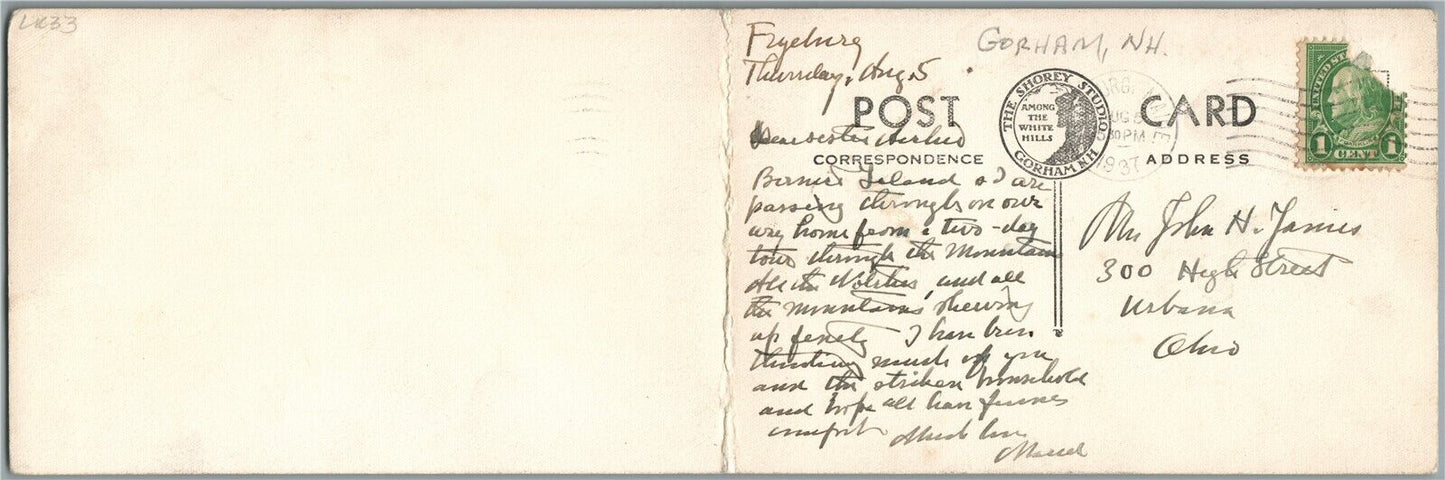 LK33
Fryeburg
Thursday, Aug. 5
GORHAM, NH.
POST CARD
THE SHOREY STUDIO
AMONG
THE
WHITE
HILLS
GORHAM N.H.
AUG 5
30 PM
1937
UNITED ST
1 CENT 1
CORRESPONDENCE
ADDRESS
Bernice Ieland & I are
passing through on our
way home from a two-day
tour through the Mountain
and all
the mountains showing
up finely I have been
thinking much of you
and the striken household
and hope all have
comfort
Much love
John H. James
300 High Street
Urbana
Ohio